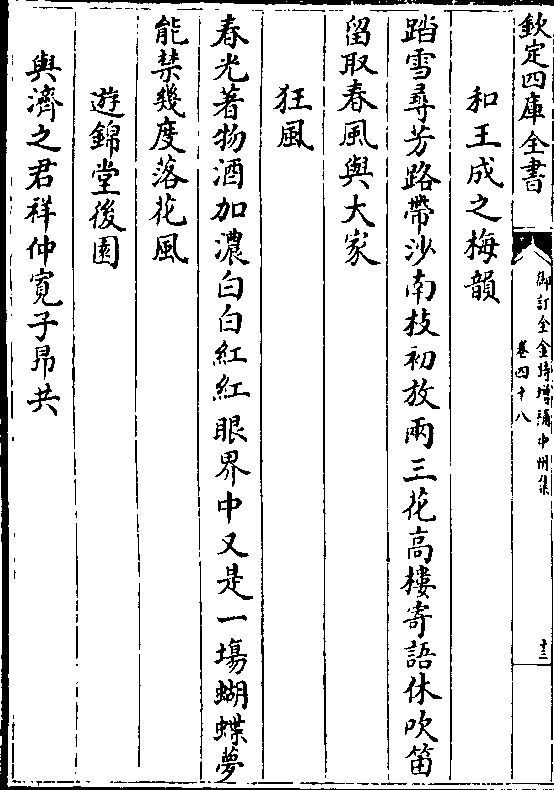 欽定四庫全書
御訂全金詩增補中州集
卷四十八
十三
和王成之梅韻
踏雪尋芳路帶沙南枝初放兩三花髙樓寄語休吹笛
留取春風與大家
狂風
春光著物酒加濃白白紅紅眼界中又是一塲蝴蝶夢
能禁幾度落花風
遊錦堂後園
與濟之君祥仲寛子昻共